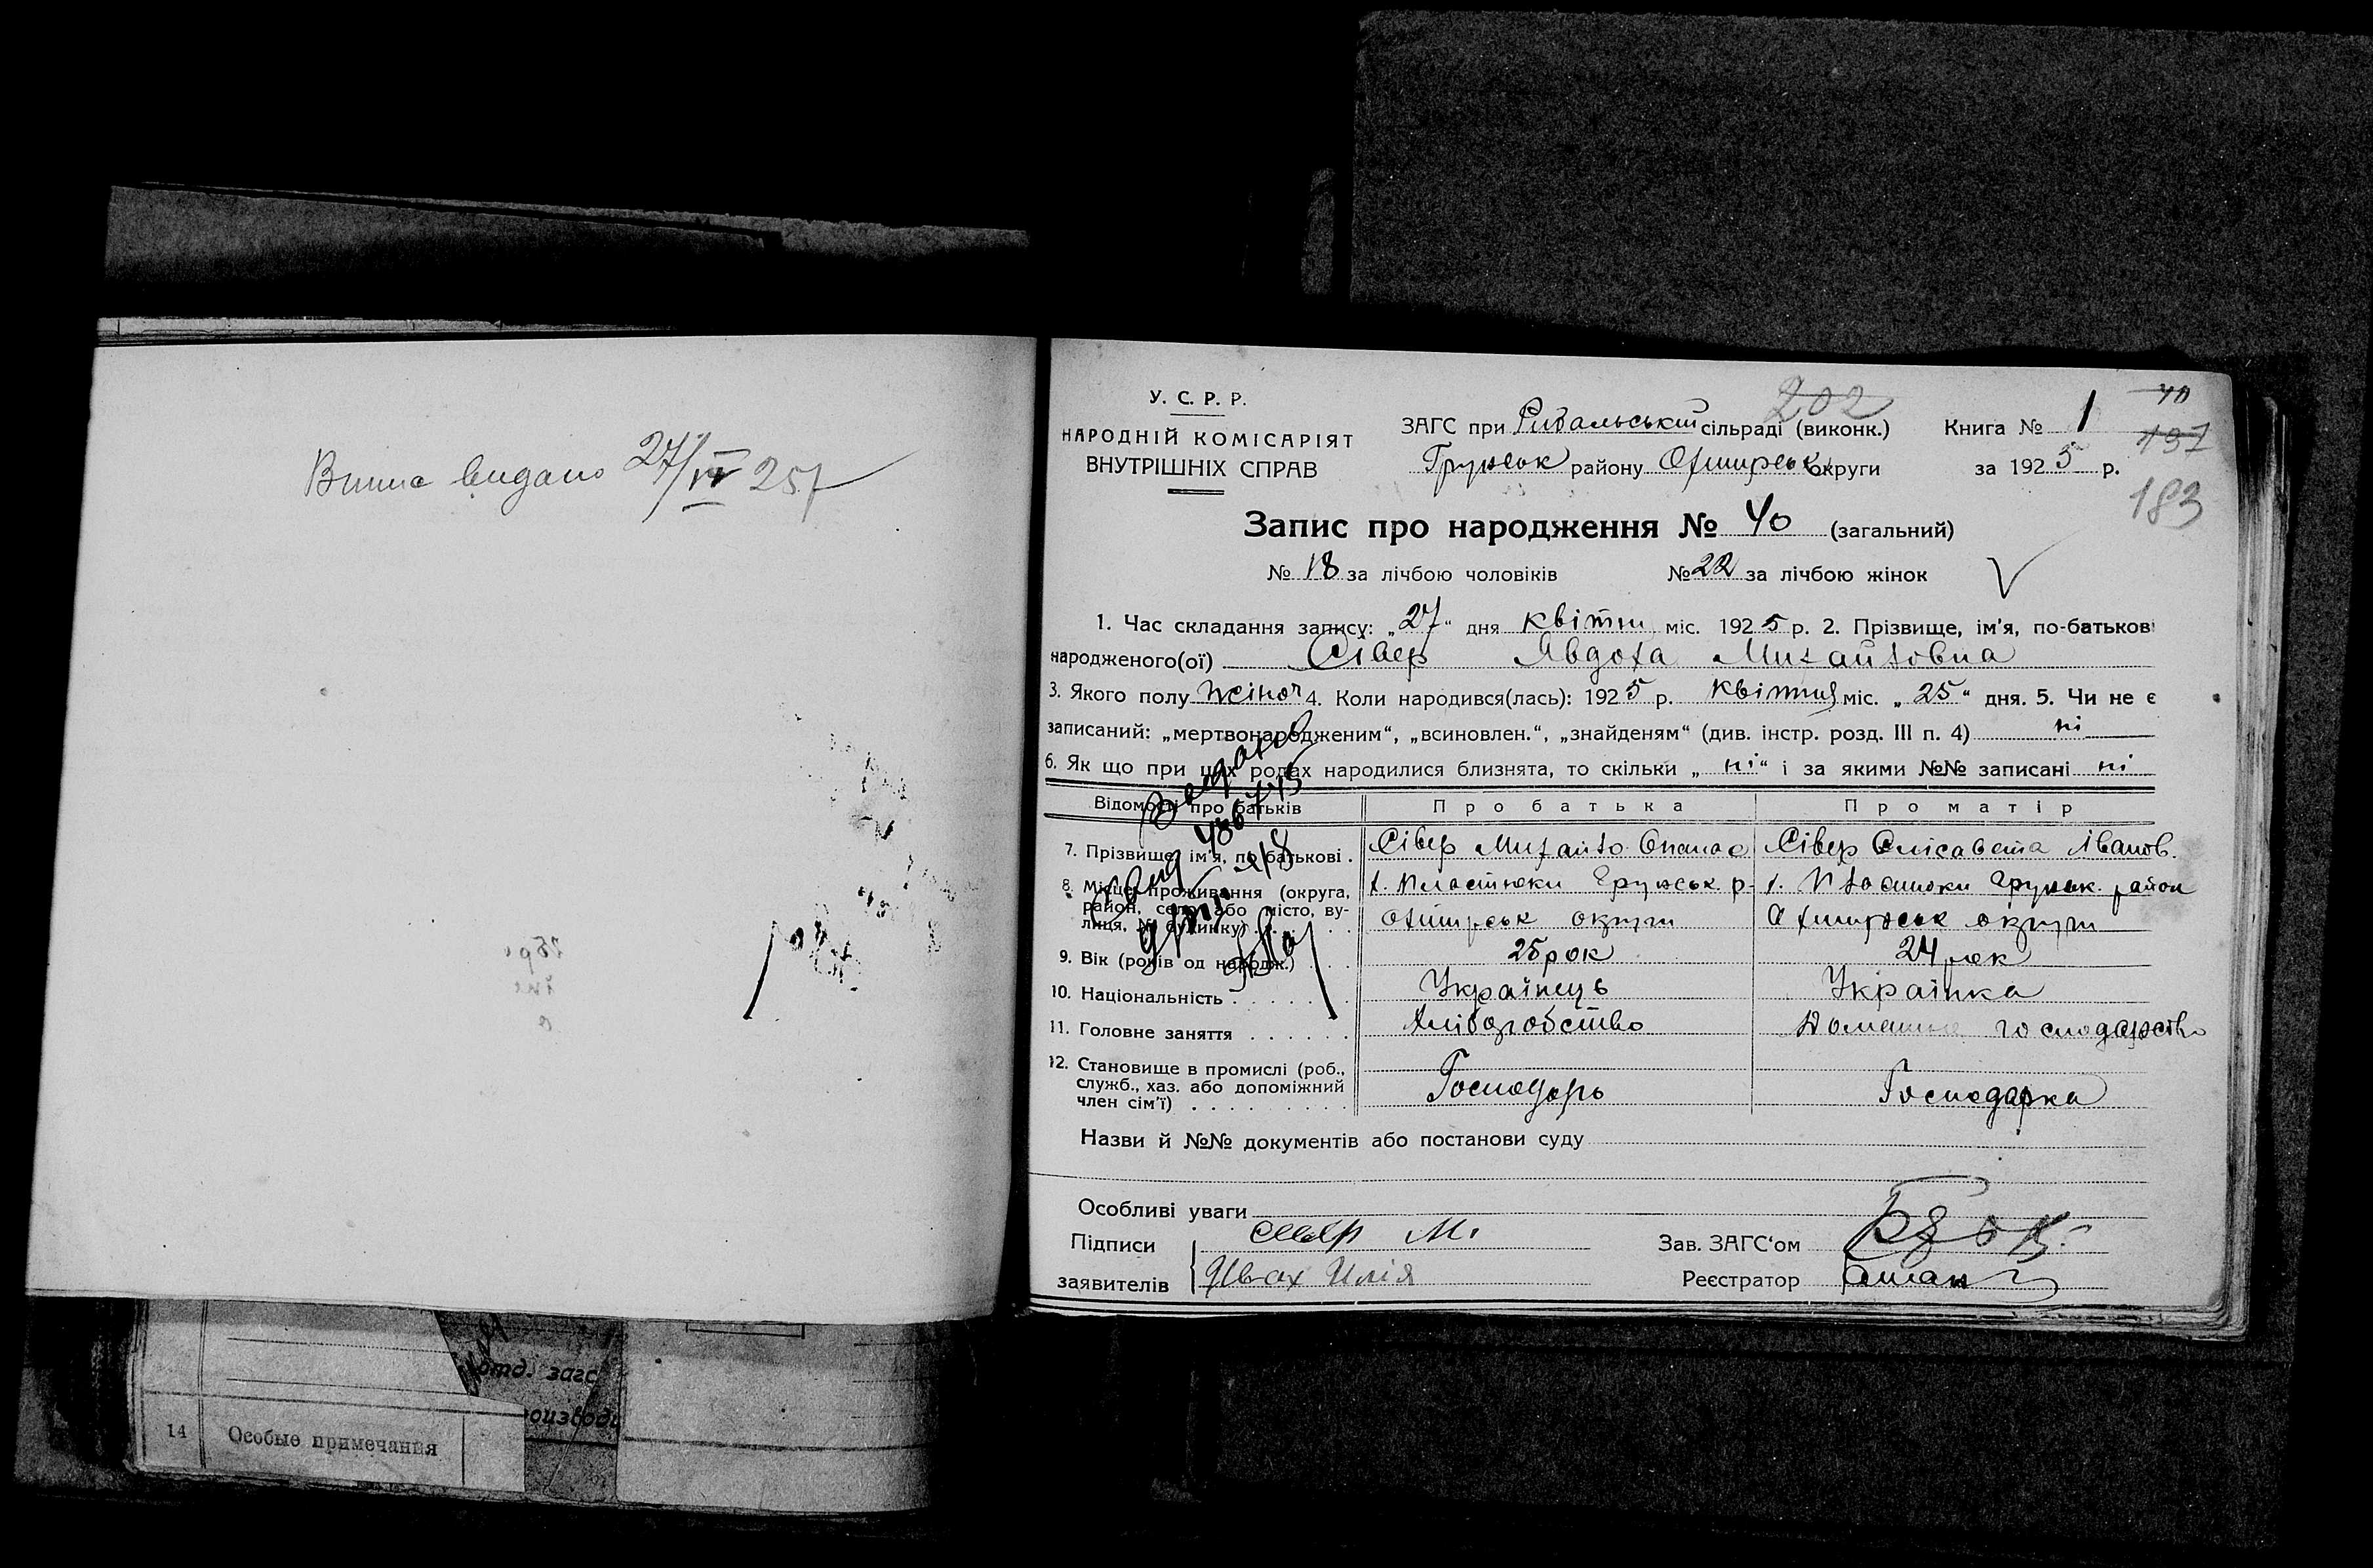 Випис видано 27/IV 25 р
У. С. Р. Р.
НАРОДНІЙ КОМІСАРІЯТ
ВНУТРІШНІХ СПРАВ
202
ЗАГС при Рибальський сільраді (виконк.)
Грунськ району Охтирськ округи
Книга № 1
за 1925 р.
40
197
183
Запис про народження № 40 (загальний)
№ 18 за лічбою чоловіків № 22 за лічбою жінок
1. Час складання запису: „27“ дня квітни міс. 1925 р. 2. Прізвище, ім'я, по-батькові
народженого(ої) Сівер Явдоха Михайловна
3. Якого полу жіноч 4. Коли народився(лась): 1925 р. квітня міс. „25“ дня. 5. Чи не є
записаний: „мертвонародженим“, „всиновлен.“, „знайденям“ (див. інстр. розд. III п. 4) ні
6. Як що при цих родах народилися близнята, то скільки „ні“ і за якими №№ записані ні
Відомості про батьків Про батька Про матір
7. Прізвище, ім'я, по батькові . Сівер Михайло Опанас Сівер Єлісавета Іванов.
8. Місце проживання (округа, район, село, або місто, вулиця, № будинку) . . .
х. Пластюки Грунськ р-
Охтирськ округи
х. Пластюки Грунськ. район
Охтирськ округи
9. Вік (років од народж.) . . . 25 рок 24 рок
10. Національність . . . . . . . Українець Українка
11. Головне заняття . . . . . . Хліборобство Домашнє господарство
12. Становище в промислі (роб.,
служб., хаз. або допоміжний
член сім'ї) . . . . . . . . . Господарь Господарка
Назви й №№ документів або постанови суду
Особливі уваги
Підписи Сивер М.
Зав. ЗАГС‘ом
заявителів Івах Илія
Реєстратор
отд. загс
14 Особые примечания